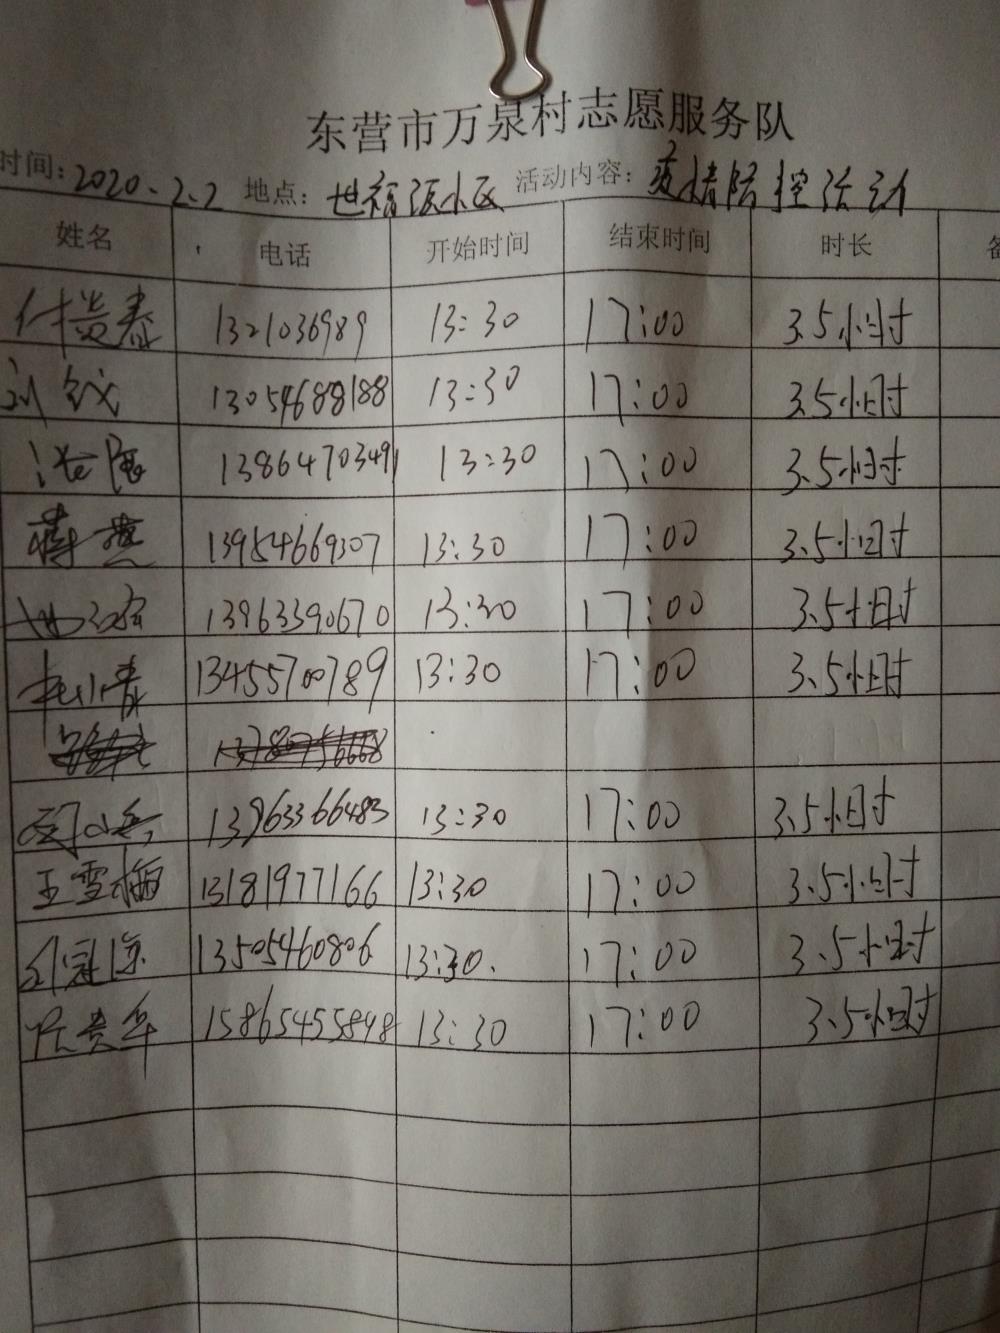 东营市万泉村志愿服务队
时间：2020.2.2 地点：世福源小区 活动内容：疫情防控活动
姓名 电话 开始时间 结束时间 时长
付贵泰 1321036989 13:30 17:00 3.5小时
13054688188 13:30 17:00 3.5小时
13864703491 13:30 17:00 3.5小时
蒋燕 13954669307 13:30 17:00 3.5小时
13963390670 13:30 17:00 3.5小时
13455700789 13:30 17:00 3.5小时
13963366483 13:30 17:00 3.5小时
王雪梅 13181977166 13:30 17:00 3.5小时
13505460806 13:30. 17:00 3.5小时
15865455898 13:30 17:00 3.5小时